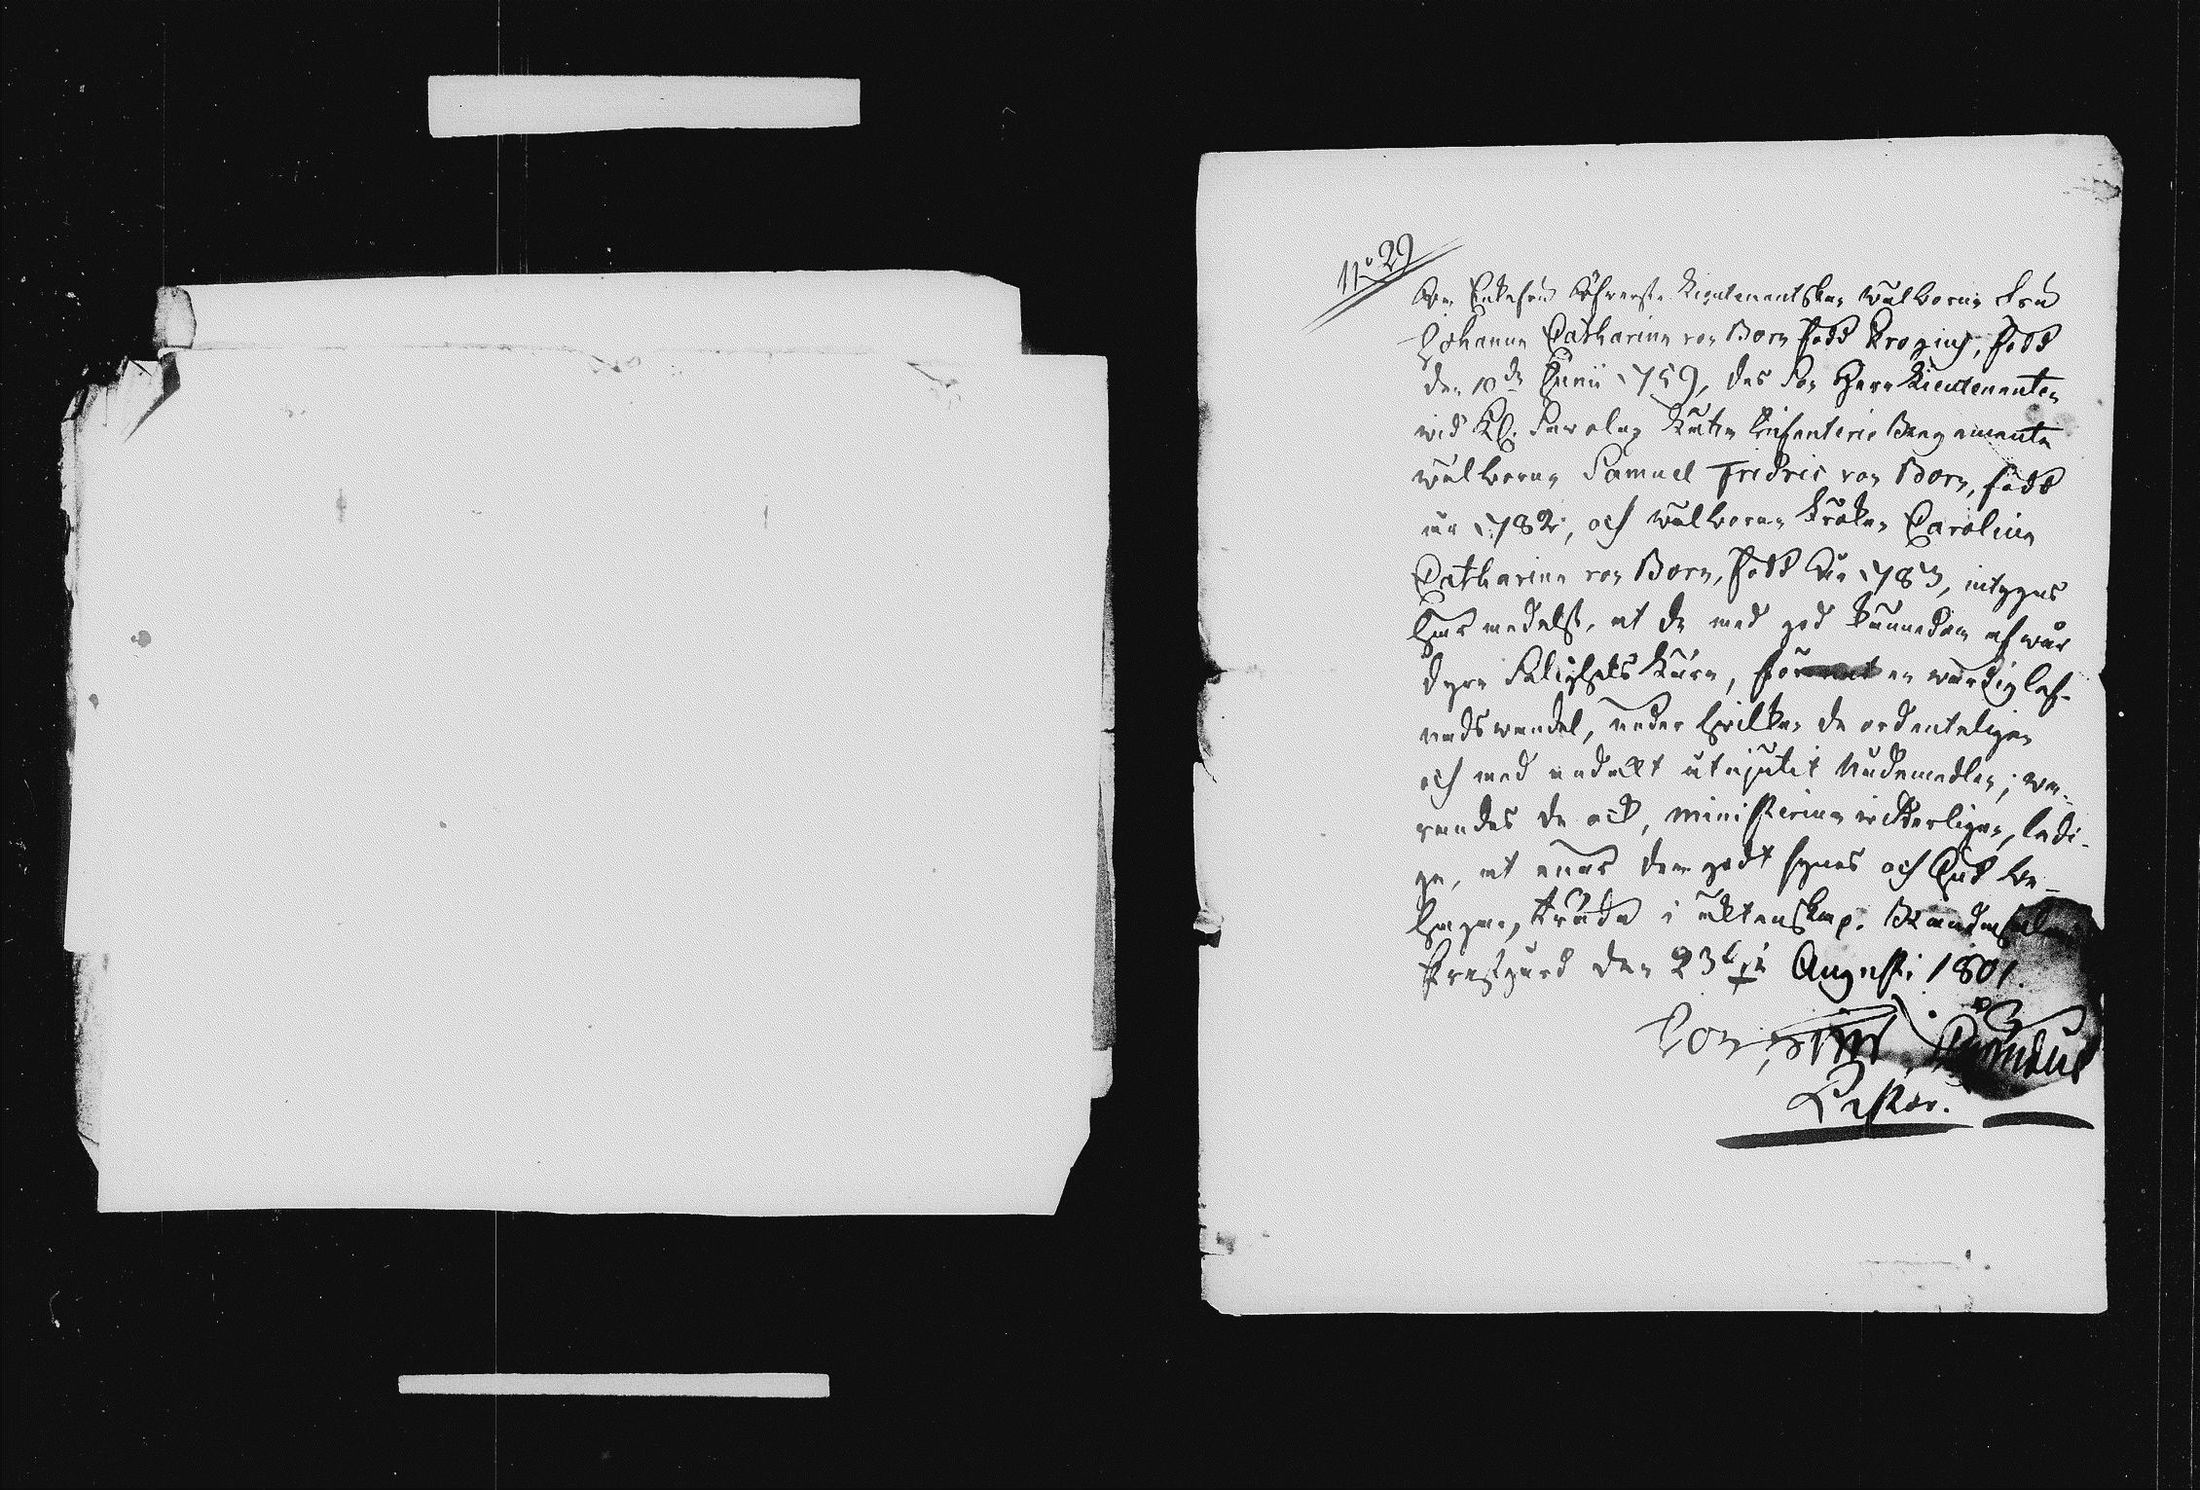 No 29
Om Enkefru Öfwerste Lieutenantskan wälborna Fru
Johanna Catharina von Born född Krogius, född
den 10de Junii 1759, des Son Herr Lieutenanten
wid Kgl. Savolax Lätta Infanterie Regemente
wälborne Samuel Fredric von Born, född
år 1782, och wälborna Fröken Carolina
Catharina von Born, född år 1783, intygas
här medelst, at de med god kunnedom af wår
dyra Salighets Lära, för en wärdig lef-
nadswandel, under hwilken de ordenteligen
och med andakt utnjutit Nådemedlen; wa-
randes de ock, ministerium wetterligen, ledi-
ge, at när dem godt synes och Gud be-
hagar, träda i äktenskap. Randasalmi
Prestgård den 23dje Augusti 1801.
Pastor.